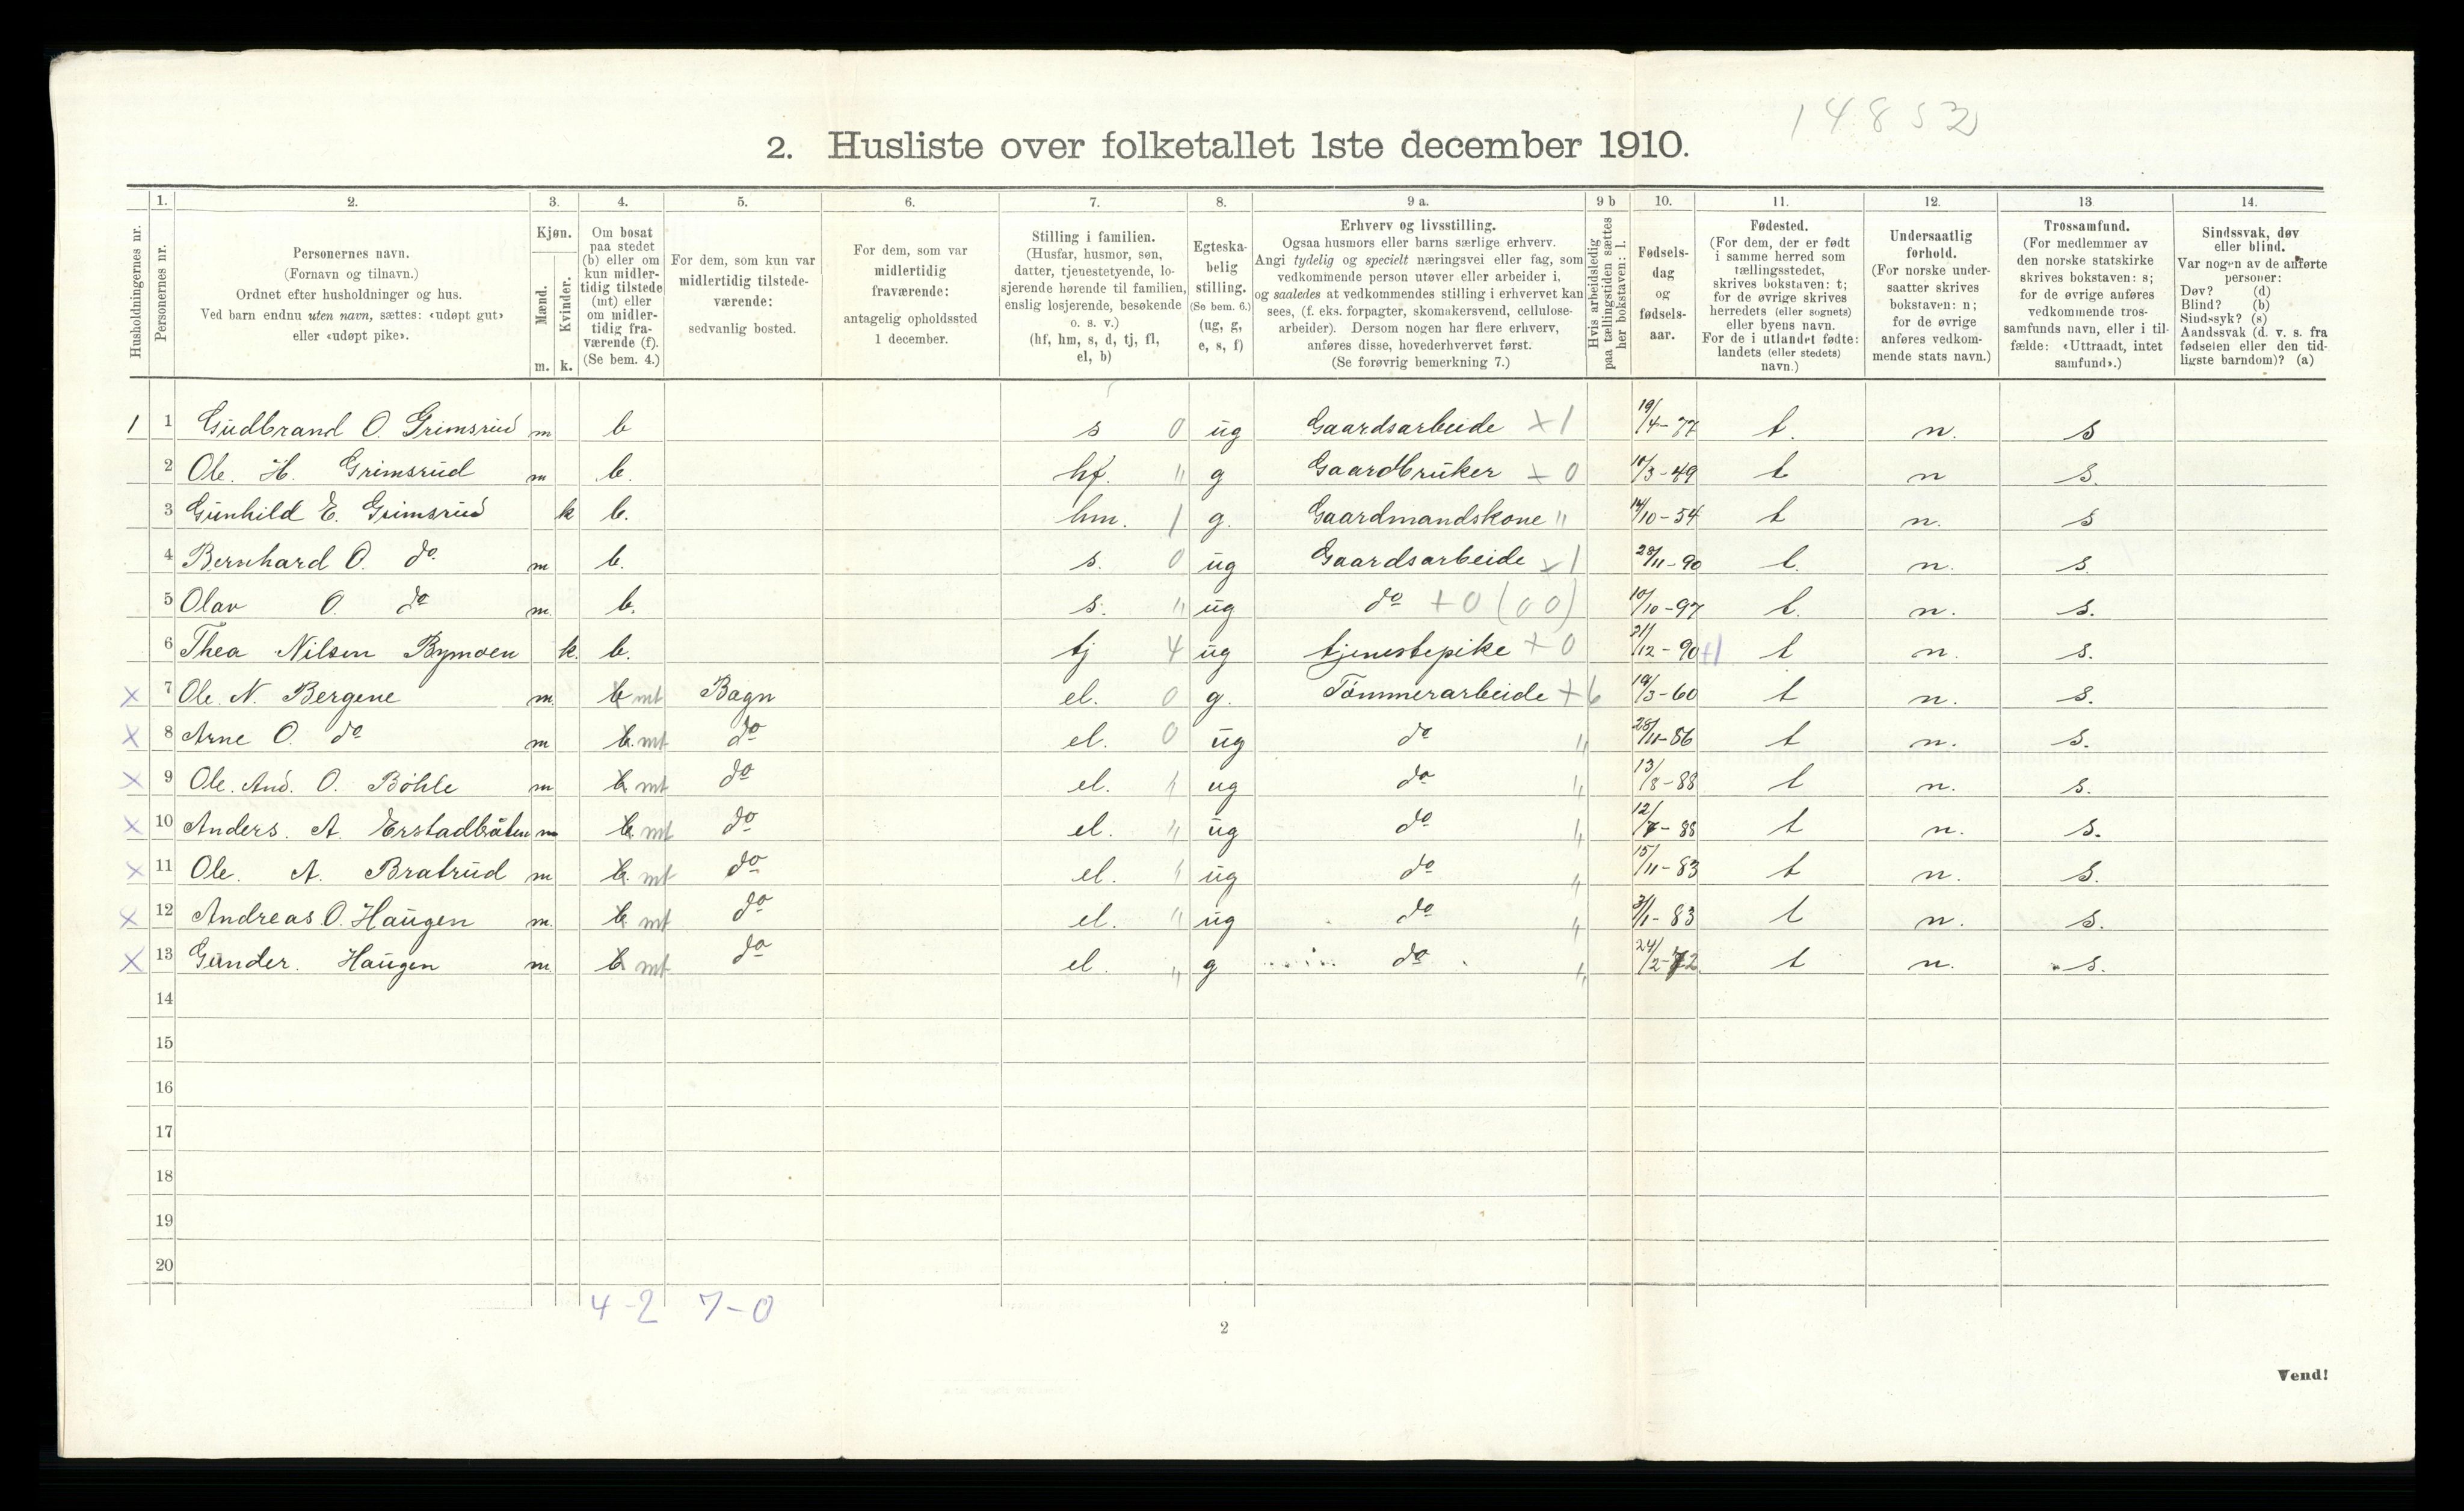 14852
2. Husliste over folketallet 1ste december 1910.
Husholdningernes nr.
1.
Personernes nr.
2.
Personernes navn.
(Fornavn og tilnavn.)
Ordnet efter husholdninger og hus.
Ved barn endnu uten navn, sættes: «udøpt gut»
eller «udøpt pike».
3.
Kjøn.
Mænd.
Kvinder.
m.
k.
4.
Om bosat
paa stedet
(b) eller om
kun midler-
tidig tilstede
(mt) eller
om midler-
tidig fra-
værende (f).
(Se bem. 4.)
5.
For dem, som kun var
midlertidig tilstede-
værende:
sedvanlig bosted.
6.
For dem, som var
midlertidig
fraværende:
antagelig opholdssted
1 december.
7.
Stilling i familien.
(Husfar, husmor, søn,
datter, tjenestetyende, lo-
sjerende hørende til familien,
enslig losjerende, besøkende
o. s. v.)
(hf, hm, s, d, tj, fl,
el, b)
8.
Egteska-
belig
stilling.
(Se bem. 6.)
(ug, g,
e, s, f)
9 a.
Erhverv og livsstilling.
Ogsaa husmors eller barns særlige erhverv.
Angi tydelig og specielt næringsvei eller fag, som
vedkommende person utøver eller arbeider i,
og saaledes at vedkommendes stilling i erhvervet kan
sees, (f. eks. forpagter, skomakersvend, cellulose-
arbeider). Dersom nogen har flere erhverv,
anføres disse, hovederhvervet først.
(Se forøvrig bemerkning 7.)
9 b
Hvis arbeidsledig
paa tællingstiden sættes
her bokstaven: l.
10.
Fødsels-
dag
og
fødsels-
aar.
11.
Fødested.
(For dem, der er født
i samme herred som
tællingsstedet,
skrives bokstaven: t;
for de øvrige skrives
herredets (eller sognets)
eller byens navn.
For de i utlandet fødte:
landets (eller stedets)
navn.)
12.
Undersaatlig
forhold.
(For norske under-
saatter skrives
bokstaven: n;
for de øvrige
anføres vedkom-
mende stats navn.)
13
Trossamfund.
(For medlemmer av
den norske statskirke
skrives bokstaven: s;
for de øvrige anføres
vedkommende tros-
samfunds navn, eller i til-
fælde: «Uttraadt, intet
samfund».)
14.
Sindssvak, døv
eller blind.
Var nogen av de anførte
personer:
Døv? (d)
Blind? (b)
Sindssyk? (s)
Aandssvak (d. v. s. fra
fødselen eller den tid-
ligste barndom)? (a)
1 1 Gudbrand O. Grimsrud m b s 0 ug Gaardsarbeide x 1 19/4-77 t. n. s
2 Ole. H. Grimsrud m b. hf. " g Gaardbruker x 0 10/3-49 t n s.
3 Gunhild E. Grimsrud k b. hm. 1 g. Gaardmandskone " 14/10-54 t n. s
4 Bernhard O. do m b. s. 0 ug Gaardsarbeide x 1 28/11-90 t. n. s.
5 Olav O. do m. b. s. " ug do +0 (00) 10/10-97 t. n. s.
6 Thea Nilsen Bymoen k. b. tj 4 ug tjenestepike +0 21/12-90 +1 t n. s.
x 7 Ole. N. Bergene m. b mt Bagn el. 0 g. Tømmerarbeide +6 19/3-60 t n. s.
x 8 Arne O. do m b. mt do el. 0 ug do " 28/11-86 t n. s.
x 9 Ole. And. O. Böhle m b. mt do el. " ug do " 13/8-88 t n. s.
x 10 Anders. A. Erstadbråten m b. mt do el. " ug do " 12/7-88 t n. s.
x 11 Ole. A. Bratrud m b. mt do el. " ug do " 15/11-83 t n. s.
x 12 Andreas O. Haugen m. b. mt do el. " ug do " 3/1-83 t n. s.
x 13 Gunder. Haugen m. b mt do el. " g do " 24/2-72 t n. s.
14
15
16
17
18
19
20
4-2 7-0
2
Vend!